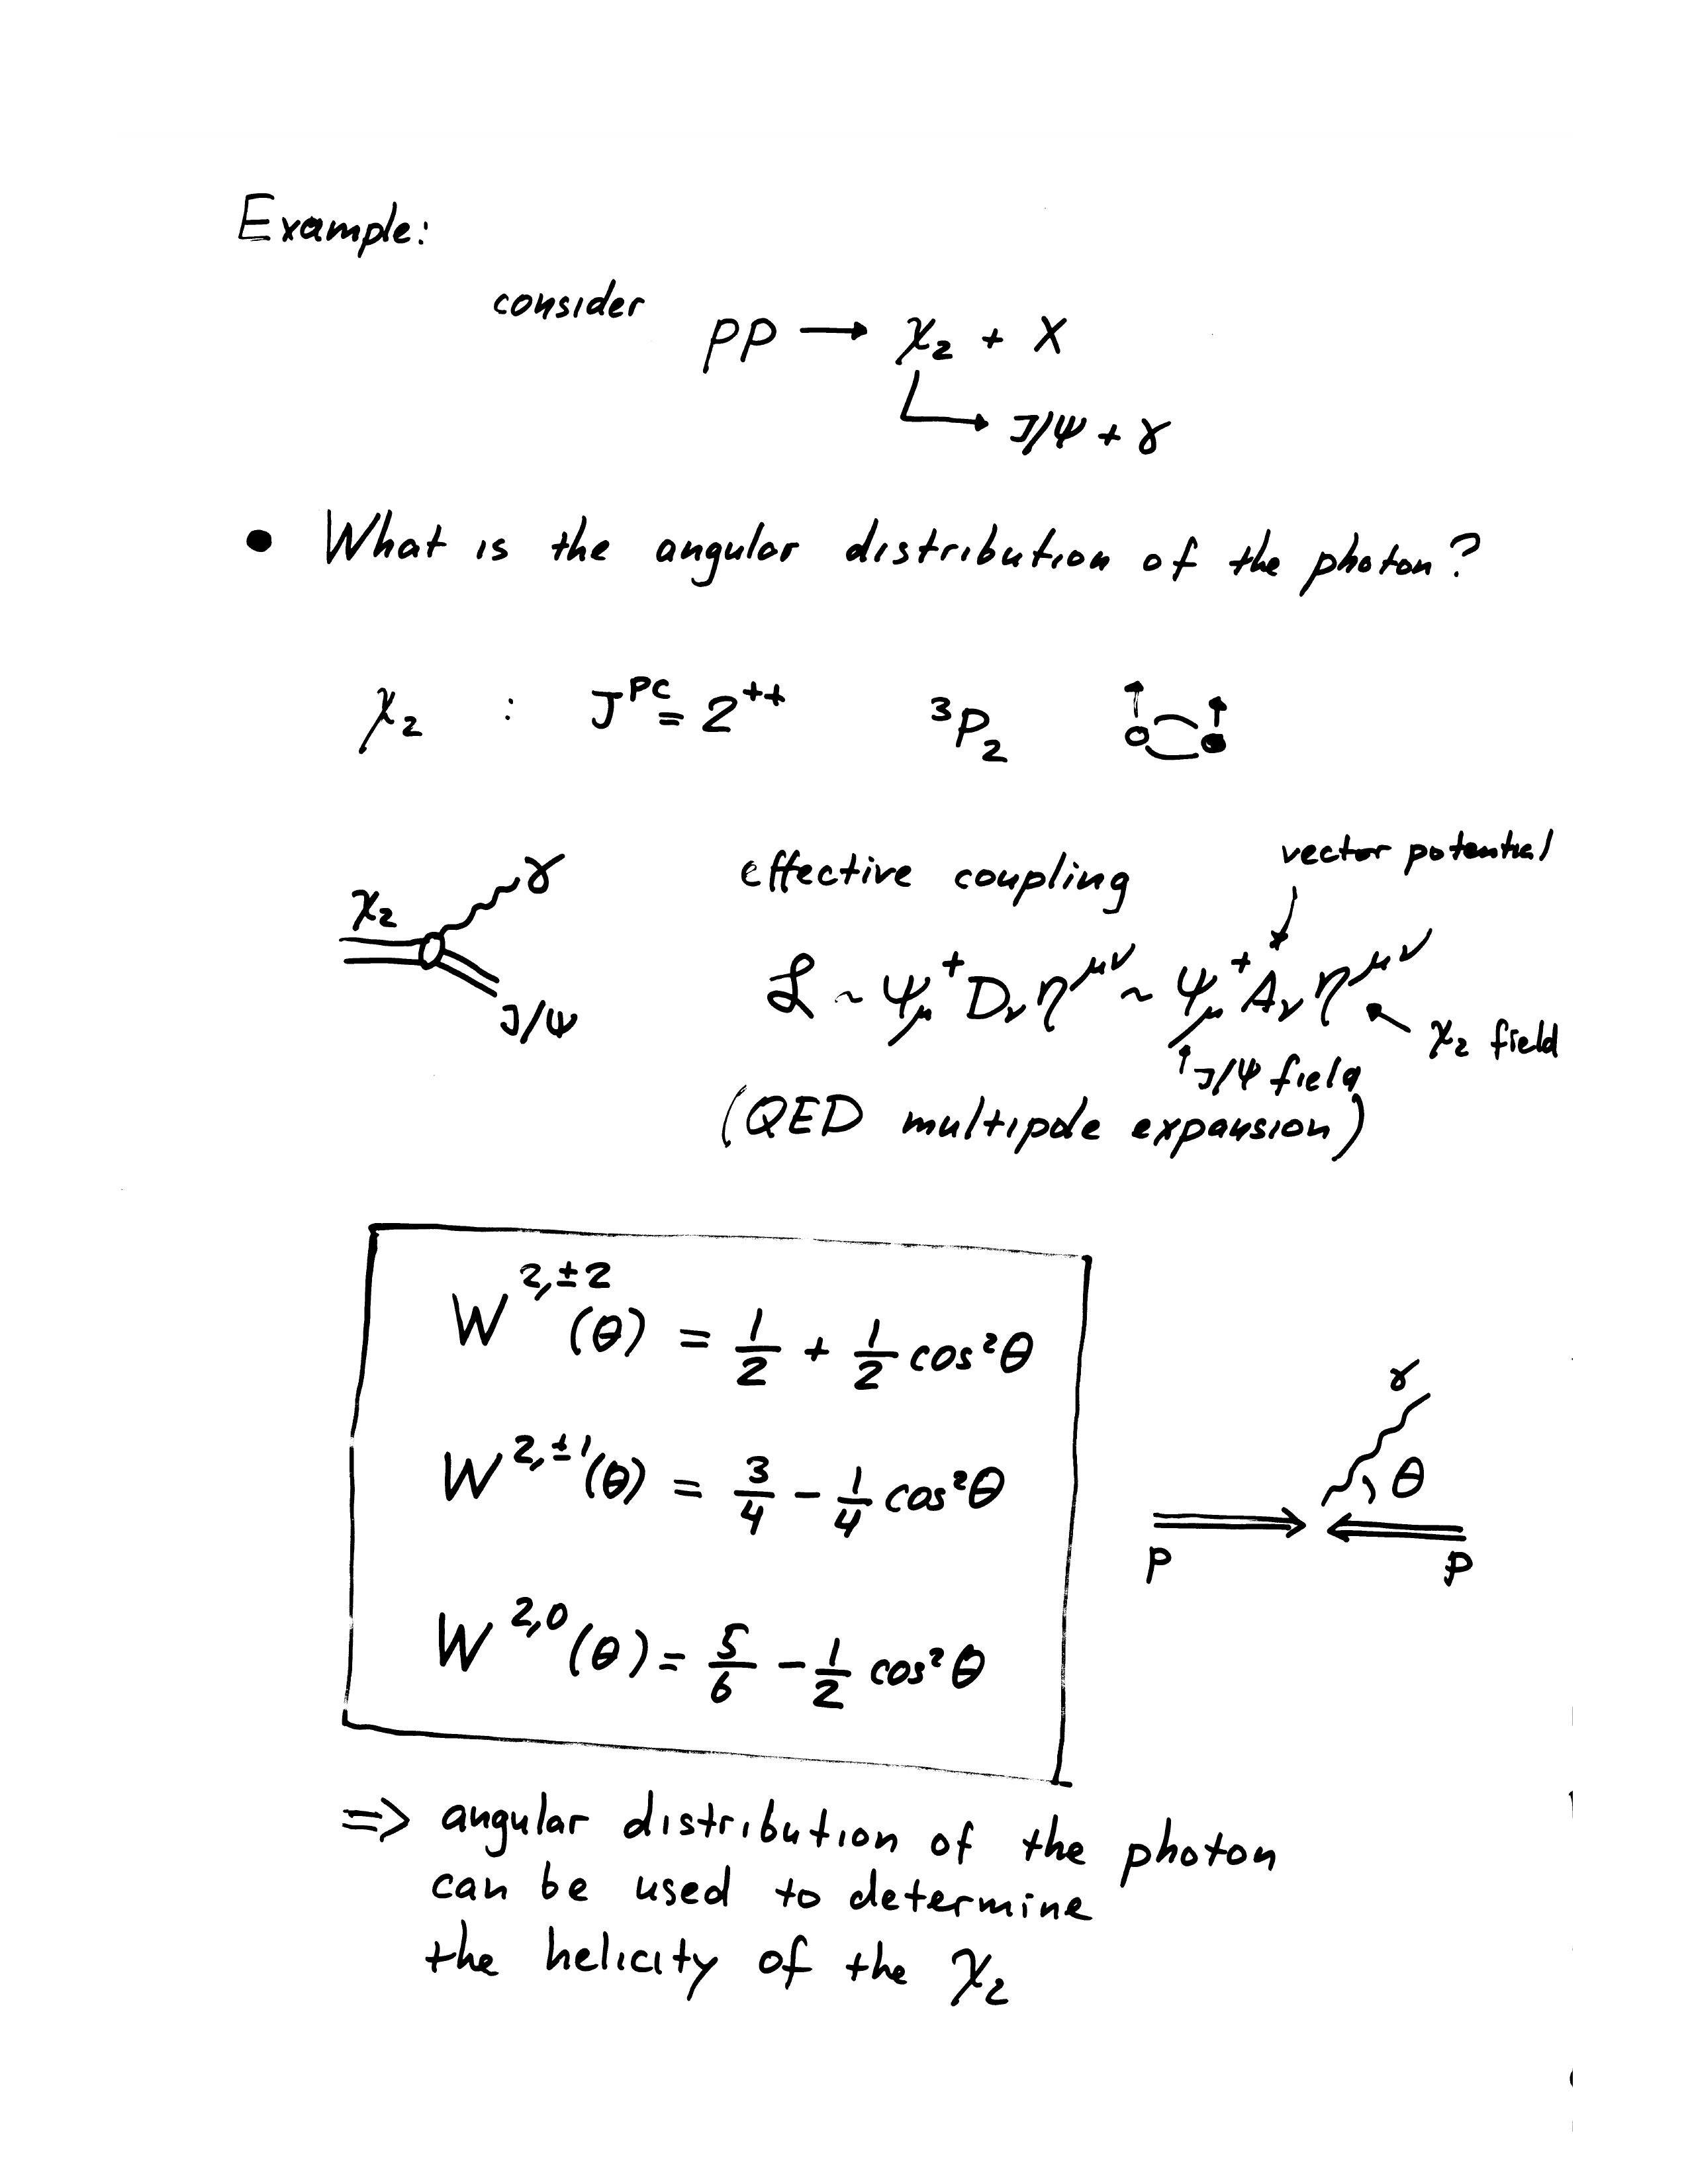 Example:
consider pp → χ₂ + X
↳ J/ψ + γ
• What is the angular distribution of the photon?
χ₂ : J^PC = 2^++ ³P₂
vector potential
effective coupling
χ₂ γ J/ψ
ℒ ~ ψ_μ^+ D_ν η^μν ~ ψ_μ^+ A_ν η^μν
χ₂ field
J/ψ field
(QED multipole expansion)
W^2,±2 (θ) = 1/2 + 1/2 cos²θ
W^2,±1 (θ) = 3/4 - 1/4 cos²θ
γ θ
p p
W^2,0 (θ) = 5/6 - 1/2 cos²θ
⇒ angular distribution of the photon
can be used to determine
the helicity of the χ₂